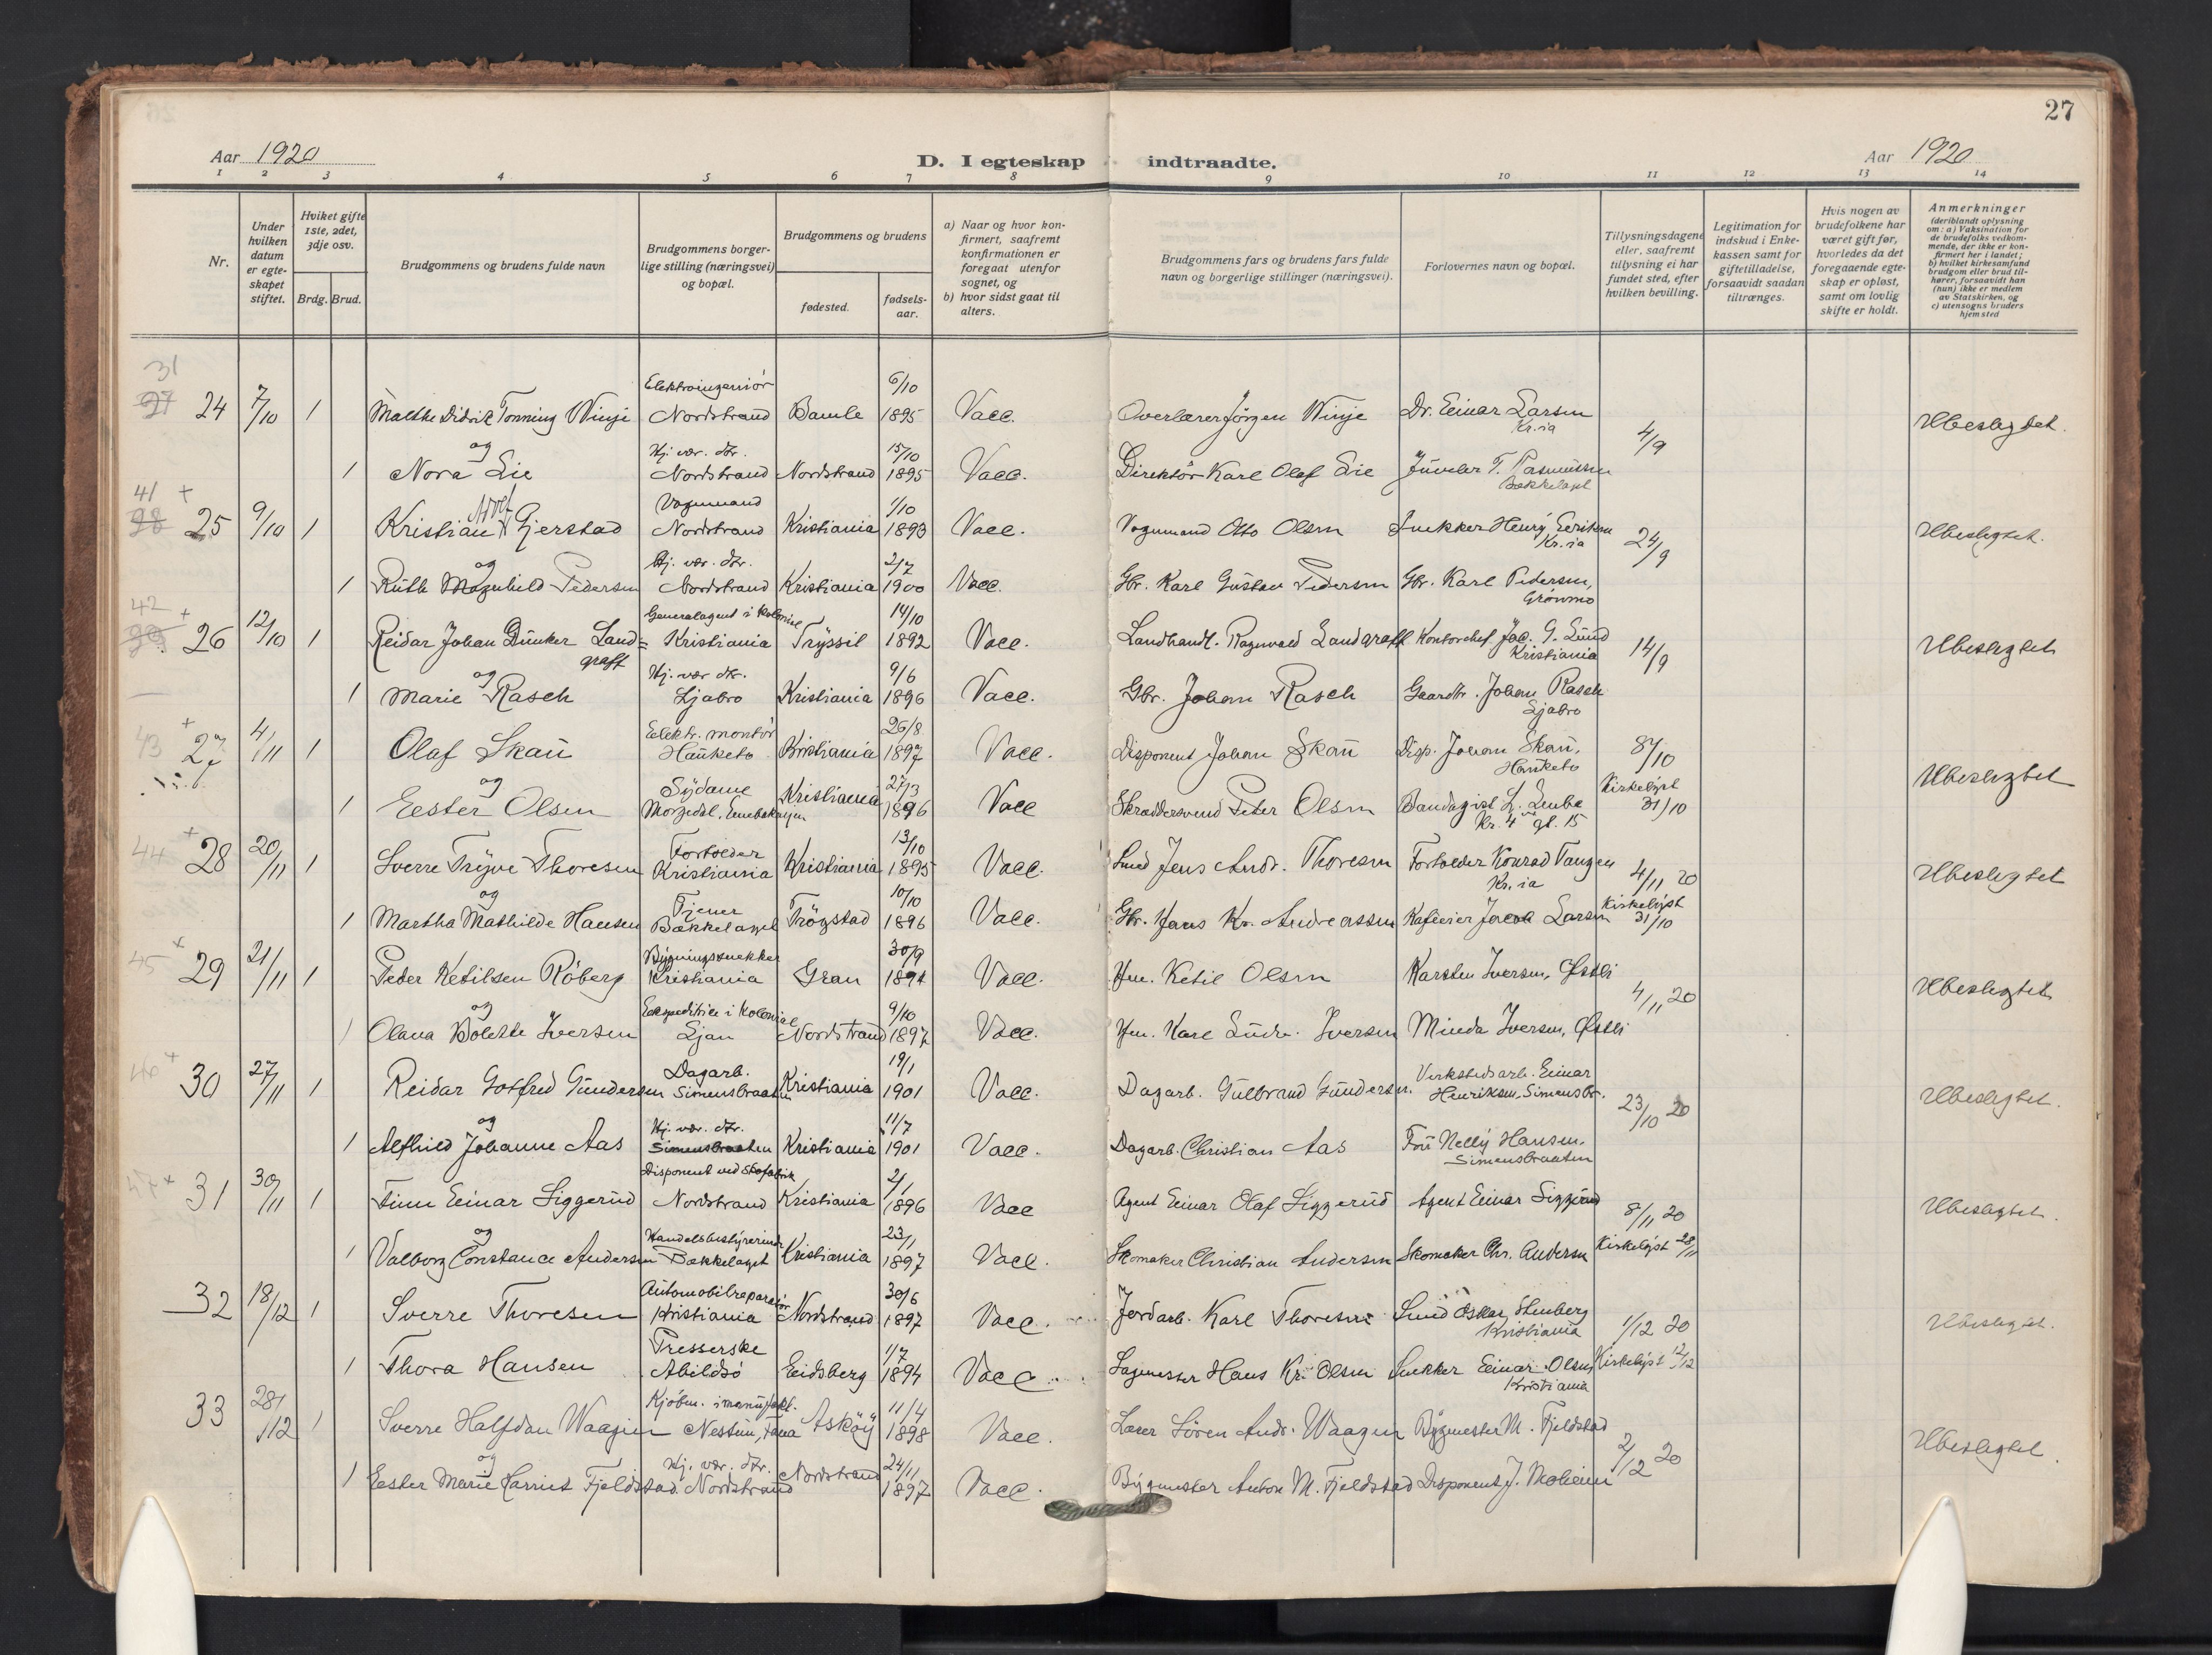 27
Aar 1920
D. I egteskap indtraadte.
Aar 1920
1 2 3 4 5 6 7 8 9 10 11 12 13 14
Nr.
Under hvilken datum er egteskapet stiftet.
Hviket gifte 1ste, 2det, 3dje osv.
Brdg. Brud.
Brudgommens og brudens fulde navn
Brudgommens borgerlige stilling (næringsvei) og bopæl.
Brudgommens og brudens
fødested.
fødselsaar.
a) Naar og hvor konfirmert, saafremt konfirmationen er foregaat utenfor sognet, og
b) hvor sidst gaat til alters.
Brudgommens fars og brudens fars fulde navn og borgerlige stillinger (næringsvei).
Forlovernes navn og bopæl.
Tillysningsdagene eller, saafremt tillysning ei har fundet sted, efter hvilken bevilling.
Legitimation for indskud i Enkekassen samt for giftetilladelse, forsaavidt saadan tiltrænges.
Hvis nogen av brudefolkene har været gift før, hvorledes da det foregaaende egteskap er opløst, samt om lovlig skifte er holdt.
Anmerkninger
(deriblandt oplysning om: a) Vaksination for de brudefolks vedkommende, der ikke er konfirmert her i landet; b) hvilket kirkesamfund brudgom eller brud tilhører, forsaavidt han (hun) ikke er medlem av Statskirken, og c) utensogns bruders hjemsted
31
Elektroingeniör 6/10
27 24 7/10 1 Malthe Didrik Tonning Winje Nordstrand Bamle 1895 Vacc. Overlærer Jörgen Winje Dr. Einar Larsen Kr.ia 4/9 Ubeslegtet.
og Hj. vær. dtr. 15/10
1 Nora Lie Nordstrand Nordstrand 1895 Vacc. Direktör Karl Olaf Lie Juveler T. Rasmussen Bækkelaget
41 + Adolf Vognmand 1/10
28 25 9/10 1 Kristian Gjerstad Nordstrand Kristiania 1893 Vacc. Vognmand Otto Olsen Snekker Henry Eriksen Kr.ia 24/9 Ubeslegtet.
og Hj. vær. dtr. 2/7
1 Ruth Magnhild Pedersen Nordstrand Kristiania 1900 Vacc. Gbr. Karl Gustav Pedersen Gbr. Karl Pedersen, Grönmo
42 + Generalagent i kolonial 14/10
29 26 12/10 1 Reidar Johan Dunker Land= Kristiania Trysil 1892 Vacc. Landhandl. Ragnvald Landgraff Kontorchef Jac. G. Lund Kristiania 14/9 Ubeslegtet
graff
og Hj. vær dtr. 9/6
1 Marie Rasch Ljabro Kristiania 1896 Vacc. Gbr. Johan Rasch Gaardbr. Johan Rasch Ljabro
43 + Elektr. montör 26/8
27 4/11 1 Olaf Skau Hauketo Kristiania 1897 Vacc. Disponent Johan Skau Disp. Johan Skau, Hauketo 8/10 Ubeslegtet
og Sydame 27/3
1 Ester Olsen Morgedal, Enebakvejen Kristiania 1896 Vacc Skræddersvend Peter Olsen Bandagist L. Kr. 4 gt. 15 Kirkelyst 31/10
44 + Forvolder 13/10
28 20/11 1 Sverre Trygve Thoresen Kristiania Kristiania 1895 Vacc. Smed Jens Andr. Thoresen Konrad Tangen Kr.ia 4/11 20 Ubeslegtet
og Tjener 10/10
1 Martha Mathilde Hansen Bækkelaget Trögstad 1896 Vacc. Gbr. Hans Kr. Andreassen Kafeeier Jacob Larsen Kirkelyst 31/10
45 + Bygningssnekker 30/9
29 21/11 1 Peder Ketilsen Röberg Kristiania Gran 1894 Vacc. Hm. Ketil Olsen Karsten Iversen, Østli 4/11 20 Ubeslegtet
og Expeditrice i kolonial 9/10
1 Olava Bolette Iversen Ljan Nordstrand 1897 Vacc. Hm. Karl Ludv. Iversen Minda Iversen, Østli
46 + Dagarb. 19/1
30 27/11 1 Reidar Gotfred Gundersen Simensbraaten Kristiania 1901 Vacc. Dagarb. Gulbrand Gundersen. Verkstedsarb. Einar Henriksen, Simensbr. 23/10 20 Ubeslegtet.
og Hj. vær. dtr. 11/7
1 Alfhild Johanne Aas Simensbraaten Kristiania 1901 Vacc. Dagarb. Christian Aas Fru Nelly Hansen. Simensbraaten
47 + Disponent ved Skofabrik 2/1
31 30/11 1 Finn Einar Siggerud Nordstrand Kristiania 1896 Vacc Agent Einar Olaf Siggerud Agent Einar Siggerud 8/11 20 Ubeslegtet.
og Handelsbestyrerinde 23/1
1 Valborg Constance Andersen Bækkelaget Kristiania 1897 Vacc. Skomaker Christian Andersen Skomaker Chr. Andersen Kirkelyst 28/11
Automobilreparatör 30/6
32 18/12 1 Sverre Thoresen Kristiania Nordstrand 1897 Vacc. Jordarb. Karl Thoresen Smed Oskar Stenberg Kristiania 1/12 20 Ubeslegtet.
Presserske 1/7
1 Thora Hansen Abildsö Eidsberg 1894 Vacc. Sagmester Hans Kr. Olsen Snekker Einar Olsen Kristiania Kirkelyst 12/12
Kjöbm. i manufakt. 11/4
33 28/12 1 Sverre Halfdan Waagen Nestun, Fana Asköy 1898 Vacc. Lærer Sören Andr. Waagen Bygmester M. Fjeldstad 2/12 20 Ubeslegtet.
og Hj. vær. dtr. 24/11
1 Ester Marie Harriet Fjeldstad Nordstrand Nordstrand 1897 Vacc. Bygmester Anton M. Fjeldstad Disponent J. Moheim